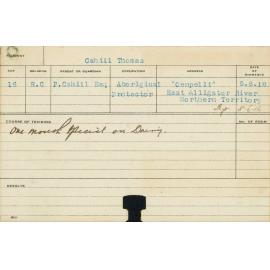 STUDENT
Cahill Thomas
AGE RELIGION PARENT OR GUARDIAN OCCUPATION ADDRESS DATE OF
16 R.C P.Cahill Esq. Aboriginal "Oenpelli" 5.6.18
Protector East Alligator River
Northern Territory
COURSE OF TRAINING NO. OF ROOM
One month Special on Dairying.
RESULTS